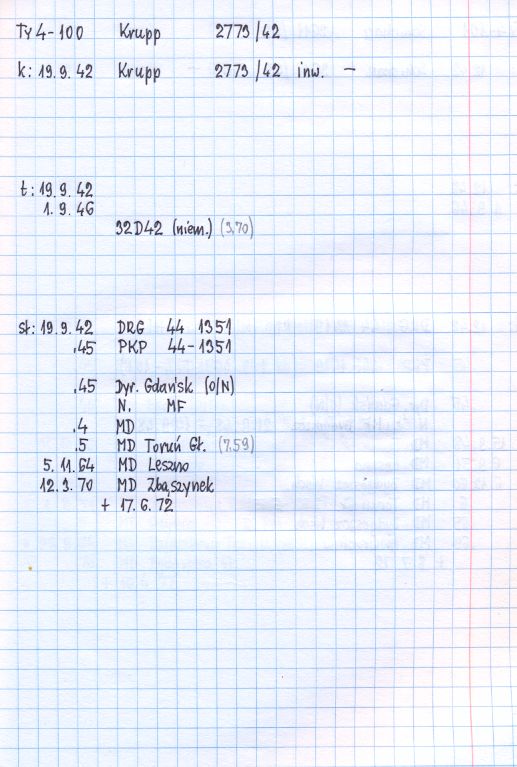 Ty4-100 Krupp 2773/42
k: 19.9.42 Krupp 2773/42 inw. -
t: 19.9.42
1.9.46
32D42 (niem.) (3.70)
sł: 19.9.42 DRG 44 1351
.45 PKP 44-1351
.45 Dyr. Gdańsk (O/N)
N. MF
.4 MD
.5 MD Toruń Gł. (7.59)
5.11.64 MD Leszno
12.3.70 MD Zbąszynek
+ 17.6.72